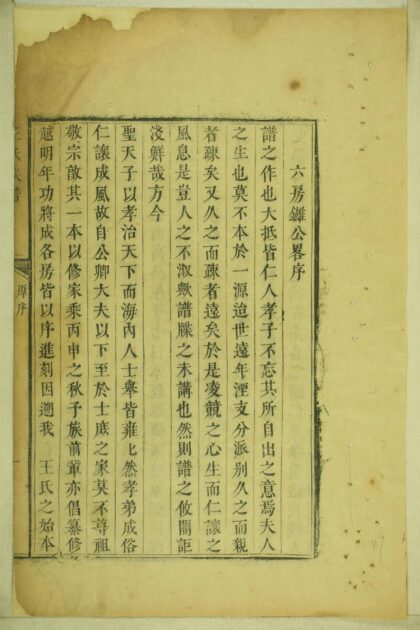 六房鏘公畧序
譜之作也大抵皆仁人孝子不忘其所自出之意焉夫人
之生也莫不本於一源迨世遠年湮支分派别久之而親
者疎矣又久之而疎者遠矣於是凌競之心生而仁讓之
風息是豈人之不淑歟譜牒之未講也然則譜之攸關詎
淺鮮哉方今
聖天子以孝治天下而海内人士舉皆雍匕然孝弟成俗
仁讓成風故自公卿大夫以下至於士庶之家莫不尊祖
敬宗敦其一本以修家乘丙申之秋予族前輩亦倡纂修
越明年功將成各房皆以序進刻因遡我 王氏之始本
氏族譜
厚序